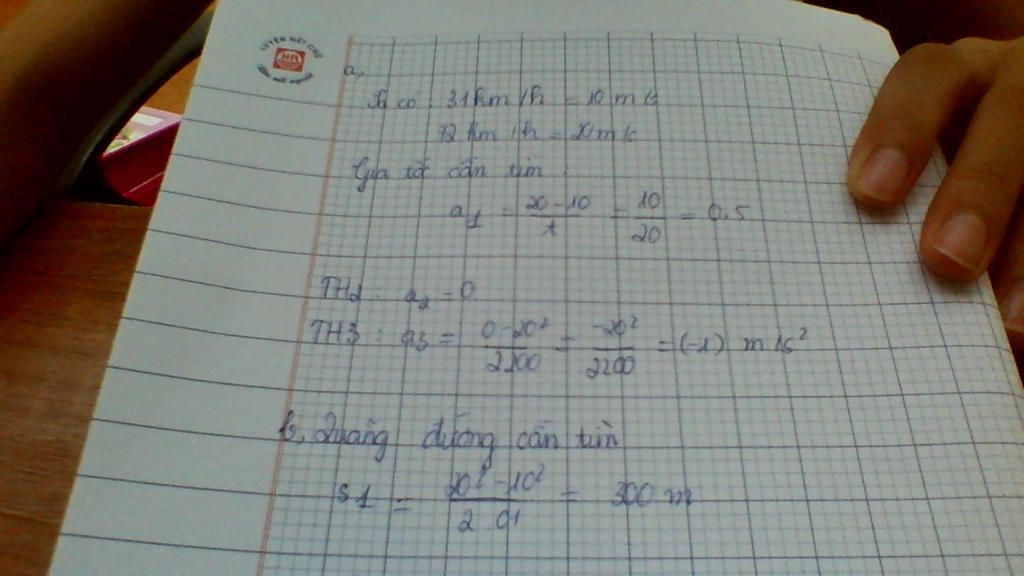 LUYỆN NÉT CHỮ
a,
Ta có : 31 km/h = 10 m/s
72 km/h = 20 m/s
Gia tốc cần tìm :
a1 = 20 - 10 / t = 10 / 20 = 0.5
TH2 : a2 = 0
TH3 : a3 = 0 - 20² / 2200 = -20² / 2200 = (-1) m/s²
b, Quãng đường cần tìm
S1 = 20² - 10² / 2.a1 = 300 m